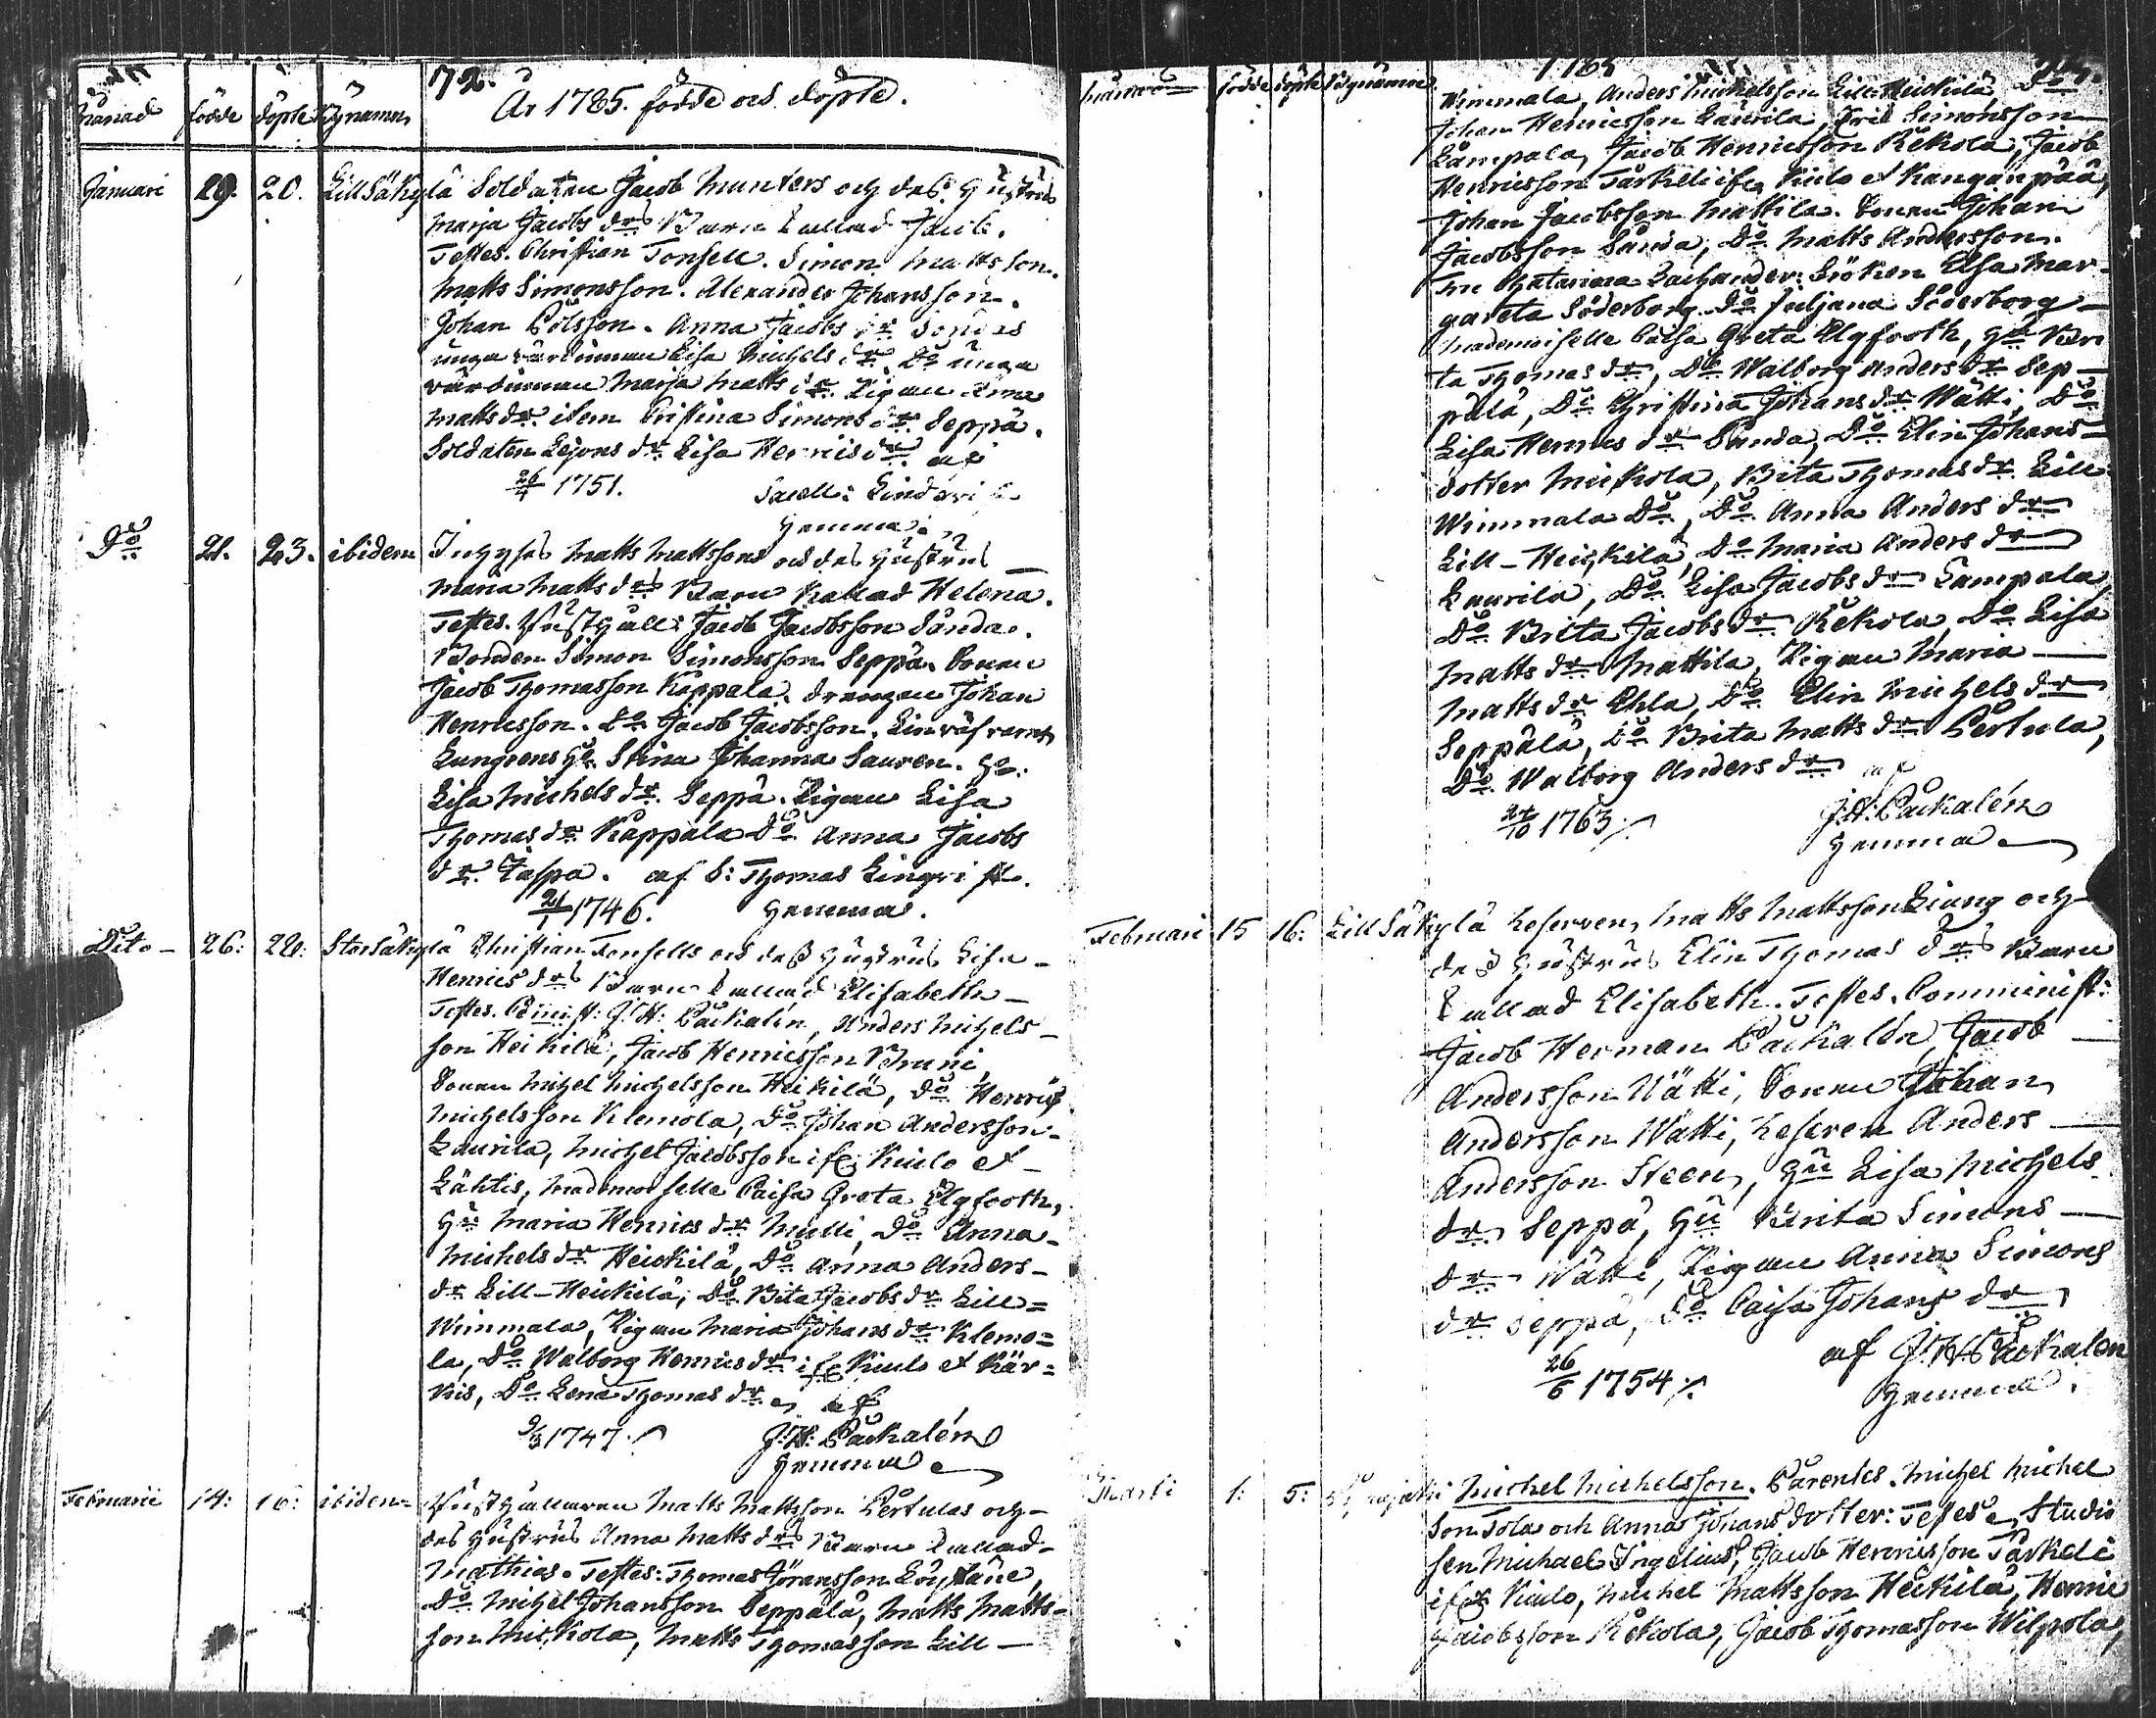 72.
År 1785. födde och döpte.
Månad födde döpte Bynamn
Januari 29. 20. Lill Säkylä Soldaten Jacob Munters och des Hustrus
Marja Jacobs drs Barn kallad Jacob.
Testes. Christian Tonsell. Simon Mattsson.
Matts Simonsson. Alexander Johansson.
Johan Pålsson. Anna Jacobs dr Bondes
unga värdinnan Lisa Michels dr. Do unga
värdinnan Marja Matts dr. Pigan Anna
Matts dr. item Cristina Simons dr Seppä.
Soldaten Lejons dr Lisa Henricsdr. af
26/4 1751. Sacell:
hemma.
Do 21. 23. ibidem Inhyses Matts Mattssons och des hustrus
Maria Matts drs Barn kallad Helena.
Testes. Vusthåll: Jacob Jacobsson Sånda.
Bonden Simon Simonsson Seppä. Bonen
Jacob Thomasson Käppälä. drengen Johan
Henricsson. Do Jacob Jacobsson.
Lungrens Hu Stina Johanna Sauren. Hu.
Lisa Michels dr. Seppä. Pigan Lisa
Thomas dr. Käppälä Do Anna Jacobs
dr. af S: Thomas
21/1 1746. hemma.
Dito 26: 28: Storsäkylä Christian Tonsells och dess hustrus Lisa
Henrics drs Barn kallad Elisabeth
Testes. Cminist: J: H: Páckalén, Anders Michels-
son Heikilä, Jacob Henricsson Bruni,
Bonen Michel Michelsson Heikilä, Do Henric
Michelsson Klemola, Do Johan Andersson
Laurila, Michel Jacobsson ifr Kiulo et
Lähtis, Mademoiselle Caisa Greta Elgfooth,
Hu Maria Henrics dr Mulli, Do Anna
Michels dr Heickilä, Do Anna Anders-
dr Lill-Heickilä, Do Bita Jacobs dr Lill=
Wimmala, Pigan Maria Johans dr Klemo=
la, Do Walborg Henrics dr ifr Kiulo et Kär=
kis, Do Lena Thomas dr af
9/3 1747. J: H: Páckalén
hemma
Februarii 14: 16: ibidem Vusthållaren Matts Mattsson Pertulas och
des hustrus Anna Matts drs Barn kallad
Mathias. Testes: Thomas Göransson Löytäne,
Do Michel Johansson Seppälä, Matts Matts-
son Mickola, Matts Thomasson Lill
födde döpte Bynamn
Wimmala, Anders Michelsson Lill-Heickilä Do
Johan Henricsson Laurila, Eric Simonsson
Lampala, Jacob Henricsson Rekola, Jacob
Henricsson Tärkili ifr Kiulo et Kanganpää,
Johan Jacobsson Mattila. Bonen Johan
Jacobsson Sånda, Do Matts Andersson.
Fru Chatarina Lachander: Fröken Elsa Mar-
gareta Söderborg Do Juljana Söderborg
Mademoiselle Caisa Greta Elgfooth, Hu Bri
ta Thomas dr, Do Walborg Anders dr Sep-
pälä, Do Christina Johans dr Wätti, Do
Lisa Henrics dr Sånda, Do Elin Johans-
dotter Mickola, Bita Thomas dr Lill
Wimmala Do, Do Anna Anders dr
Lill-Heickilä, Do Maria Anders dr
Laurila, Do Lisa Jacobs dr Lampala,
Do Brita Jacobs dr Rekola, Do Lisa
Matts dr Mattila, Pigan Maria
Matts dr Ehla, Do Elin Michels dr
Seppälä, Do Brita Matts dr Pertula,
Do Walborg Anders dr af
24/10 1763. J. H: Páckalén
hemma
Februari 15 16: Lill Säkylä Reserven, Matts Mattsson Liung och
des hustrus Elin Thomas drs Barn
kallad Elisabeth. Testes. Comminist:
Jacob Herman Páckalén, Jacob
Andersson Wätti, Bonen Johan
Andersson Wätti, Reserven Anders
Andersson Steen, Hu Lisa Michels
dr Seppä, Hu Brita Simons
dr Wätti, Pigan Anna Simons
dr Seppä, Do Caisa Johans dr
af J. H: Páckalén
26/6 1754. hemma.
Marti 1: 5: Michel Michelsson. Parentes. Michel Michel
son Tola och Anna Johans dotter: Testes Studio
sen Michael Ingelius, Jacob Henricsson Tärkeli
ifr Kiulo, Michel Mattsson Heikilä, Henric
Jacobsson Rekola, Jacob Thomasson Wilpola,